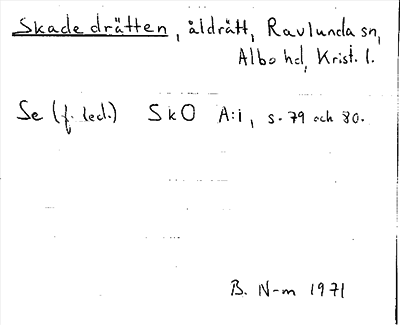 Skadedrätten, åldrätt, Ravlunda sn,
Albo hd, Krist. l.
Se (f. led.) SkO A:i, s. 79 och 80.
B. N-m 1971